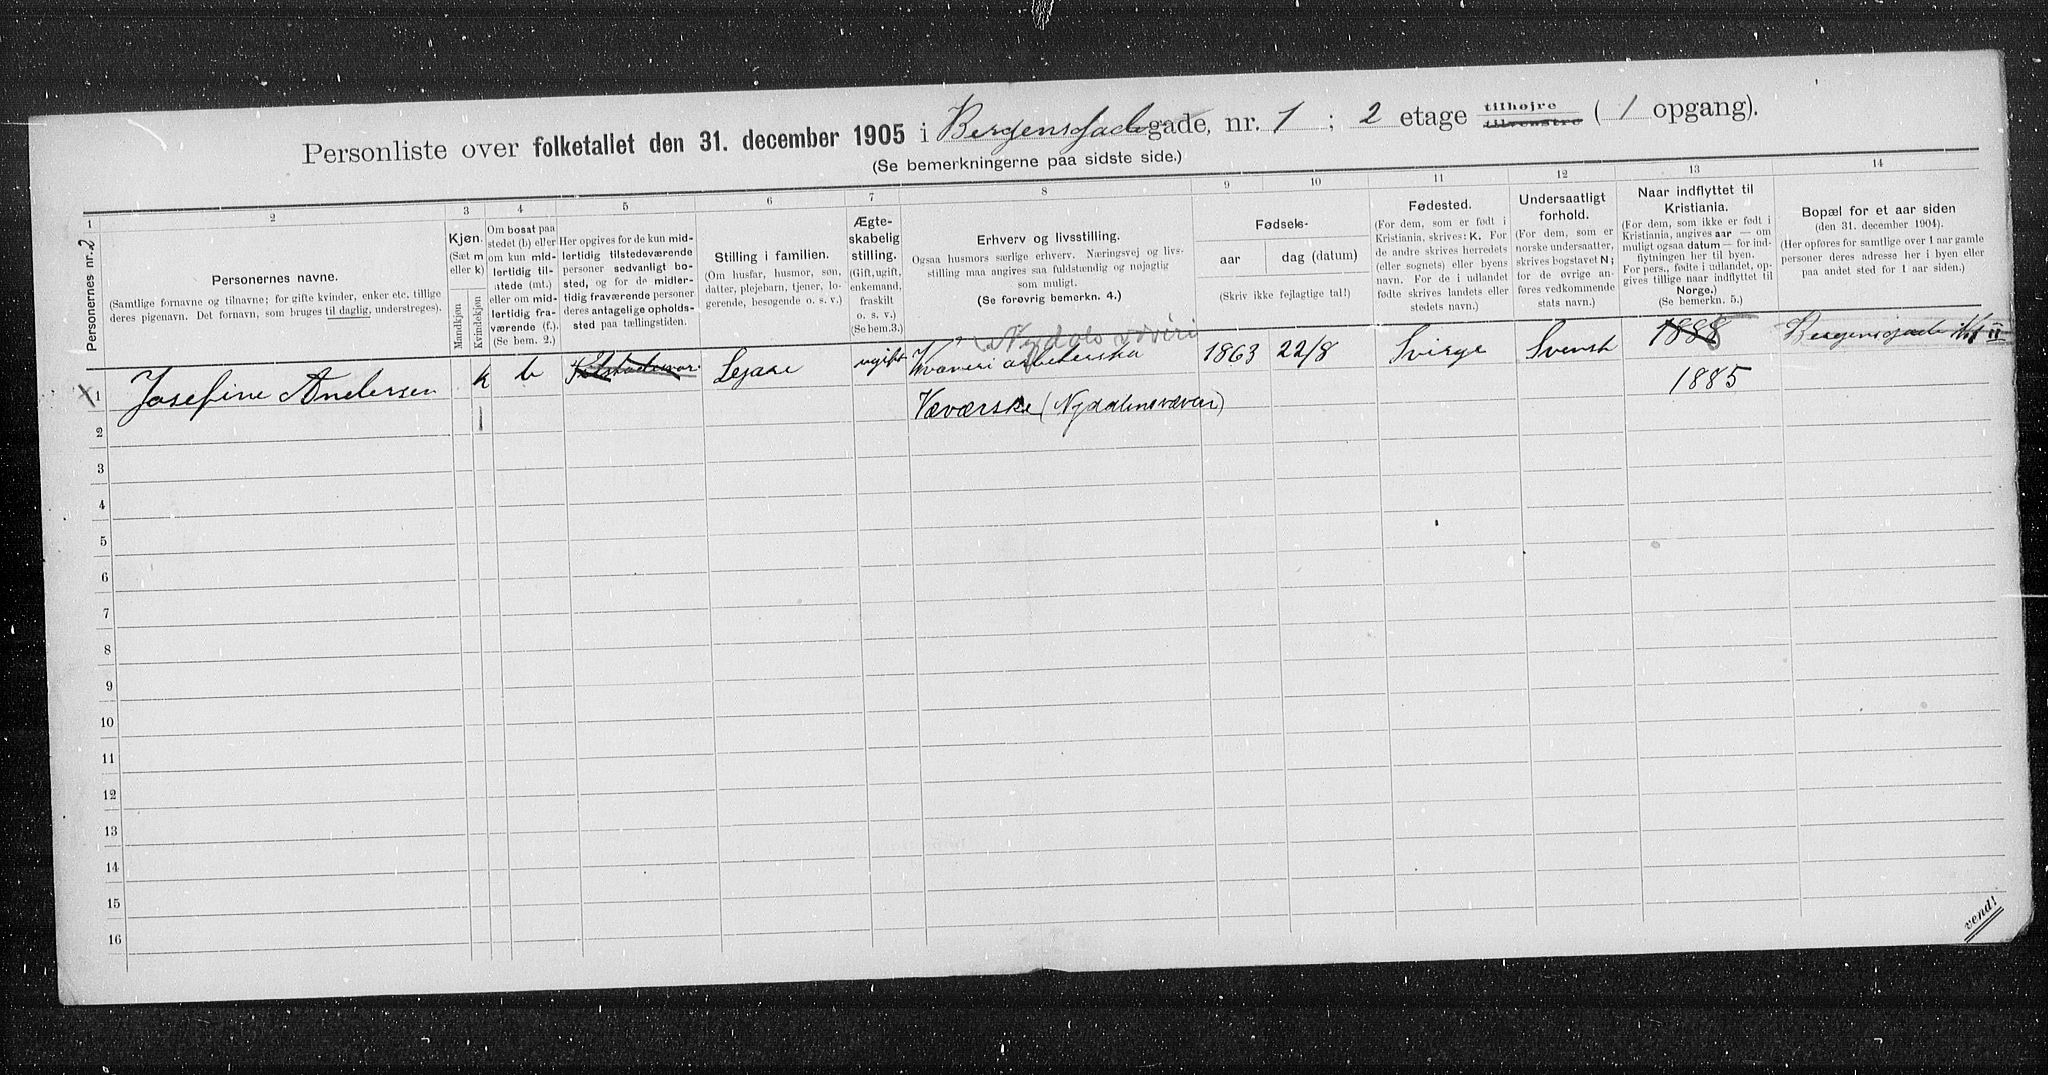 Personliste over folketallet den 31. december 1905 i Bergensgade gade, nr. 1 ; 2 etage tilhøjre tilvenstre ( 1 opgang).
(Se bemerkningerne paa sidste side.)
1 2 3 4 5 6 7 8 9 10 11 12 13 14
Personernes nr. 2
Personernes navne.
(Samtlige fornavne og tilnavne; for gifte kvinder, enker etc. tillige
deres pigenavn. Det fornavn, som bruges til daglig, understreges).
Kjøn.
(Sæt m
eller k)
Mandkjøn
Kvindekjøn
Om bosat paa
stedet (b) eller
om kun mid-
lertidig til-
stede (mt.)
eller om mid-
lertidig fra-
værende (f.)
(Se bem. 2.)
Her opgives for de kun mid-
lertidig tilstedeværende
personer sedvanligt bo-
sted, og for de midler-
tidig fraværende personer
deres antagelige opholds-
sted paa tællingstiden.
Stilling i familien.
(Om husfar, husmor, søn,
datter, plejebarn, tjener, lo-
gerende, besøgende o. s. v.)
Ægte-
skabelig
stilling.
(Gift, ugift,
enkemand,
fraskilt
o. s. v.)
(Se bem.3.)
Erhverv og livsstilling.
Ogsaa husmors særlige erhverv. Næringsvej og livs-
stilling maa angives saa fuldstændig og nøjagtig
som muligt.
(Se forøvrig bemerkn. 4.)
Fødsels-
aar dag (datum)
(Skriv ikke fejlagtige tal!)
Fødested.
(For dem, som er født i
Kristiania, skrives: K. For
de andre skrives herredets
(eller sognets) eller byens
navn. For de i udlandet
fødte skrives landets eller
stedets navn.)
Undersaatligt
forhold.
(For dem, som er
norske undersaatter,
skrives bogstavet N;
for de øvrige an-
føres vedkommende
stats navn.)
Naar indflyttet til
Kristiania.
(For dem, som ikke er født i
Kristiania, angives aar — om
muligt ogsaa datum — for ind-
flytningen her til byen.
For pers., fødte i udlandet, op-
gives tillige naar indflyttet til
Norge.)
(Se bemerkn. 5.)
Bopæl for et aar siden
(den 31. december 1904).
(Her opføres for samtlige over 1 aar gamle
personer deres adresse her i byen eller
paa andet sted for 1 aar siden.)
Nydals væveri
x 1 Josefine Andersen k b Lejare ugift Væveri arbeterska 1863 22/8 Svirge Svensk 1888 Bergensgade No 1 II
1885
2 1 Væverske (Nydalens væveri)
3
4
5
6
7
8
9
10
11
12
13
14
15
16
vend!